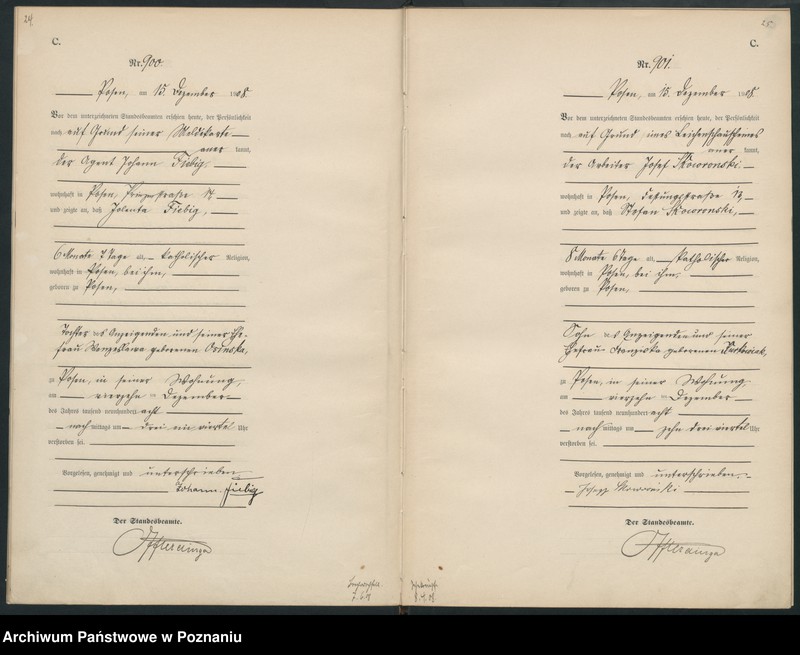 24
C.
Nr. 900
Posen, am 15. Dezember 1908
Vor dem unterzeichneten Standesbeamten erschien heute, der Persönlichkeit
nach auf Grund seiner Meldekarte
aner kannt,
der Agent Johann Fiebig,
wohnhaft in Posen,
und zeigte an, daß Jolenta Fiebig,
6 Monate 7 Tage alt, katholischer Religion,
wohnhaft in Posen, bei ihm,
geboren zu Posen,
Tochter des Anzeigenden und seiner Ehe-
frau geborenen
zu Posen, in seiner Wohnung
am vierzehn ten Dezember
des Jahres tausend neunhundert acht
nach mittags um drei ein viertel Uhr
verstorben sei.
Vorgelesen, genehmigt und unterschrieben
Johann Fiebig
Der Standesbeamte.
25
C.
Nr. 901.
Posen, am 15. Dezember 1908.
Vor dem unterzeichneten Standesbeamten erschien heute, der Persönlichkeit
nach auf Grund eines Leichenschauscheines
aner kannt,
der Arbeiter Josef Skoworonski.
wohnhaft in Posen,
und zeigte an, daß Stefan Skoworonski,
8 Monate 6 Tage alt, katholischer Religion,
wohnhaft in Posen, bei ihm,
geboren zu Posen,
Sohn des Anzeigenden und seiner
Ehefrau Franziska geborenen
zu Posen, in seiner Wohnung
am vierzehn ten Dezember
des Jahres tausend neunhundert acht
nach mittags um zehn drei viertel Uhr
verstorben sei.
Vorgelesen, genehmigt und unterschrieben.
Der Standesbeamte.
Archiwum Państwowe w Poznaniu